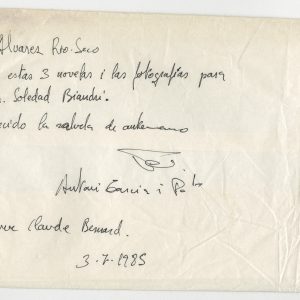 Alvarez Rio-Seco
estas 3 novelas i las fotografías para
Soledad
la saluda de antemano
Antoni García i
Claude Bernard.
3-7-1985